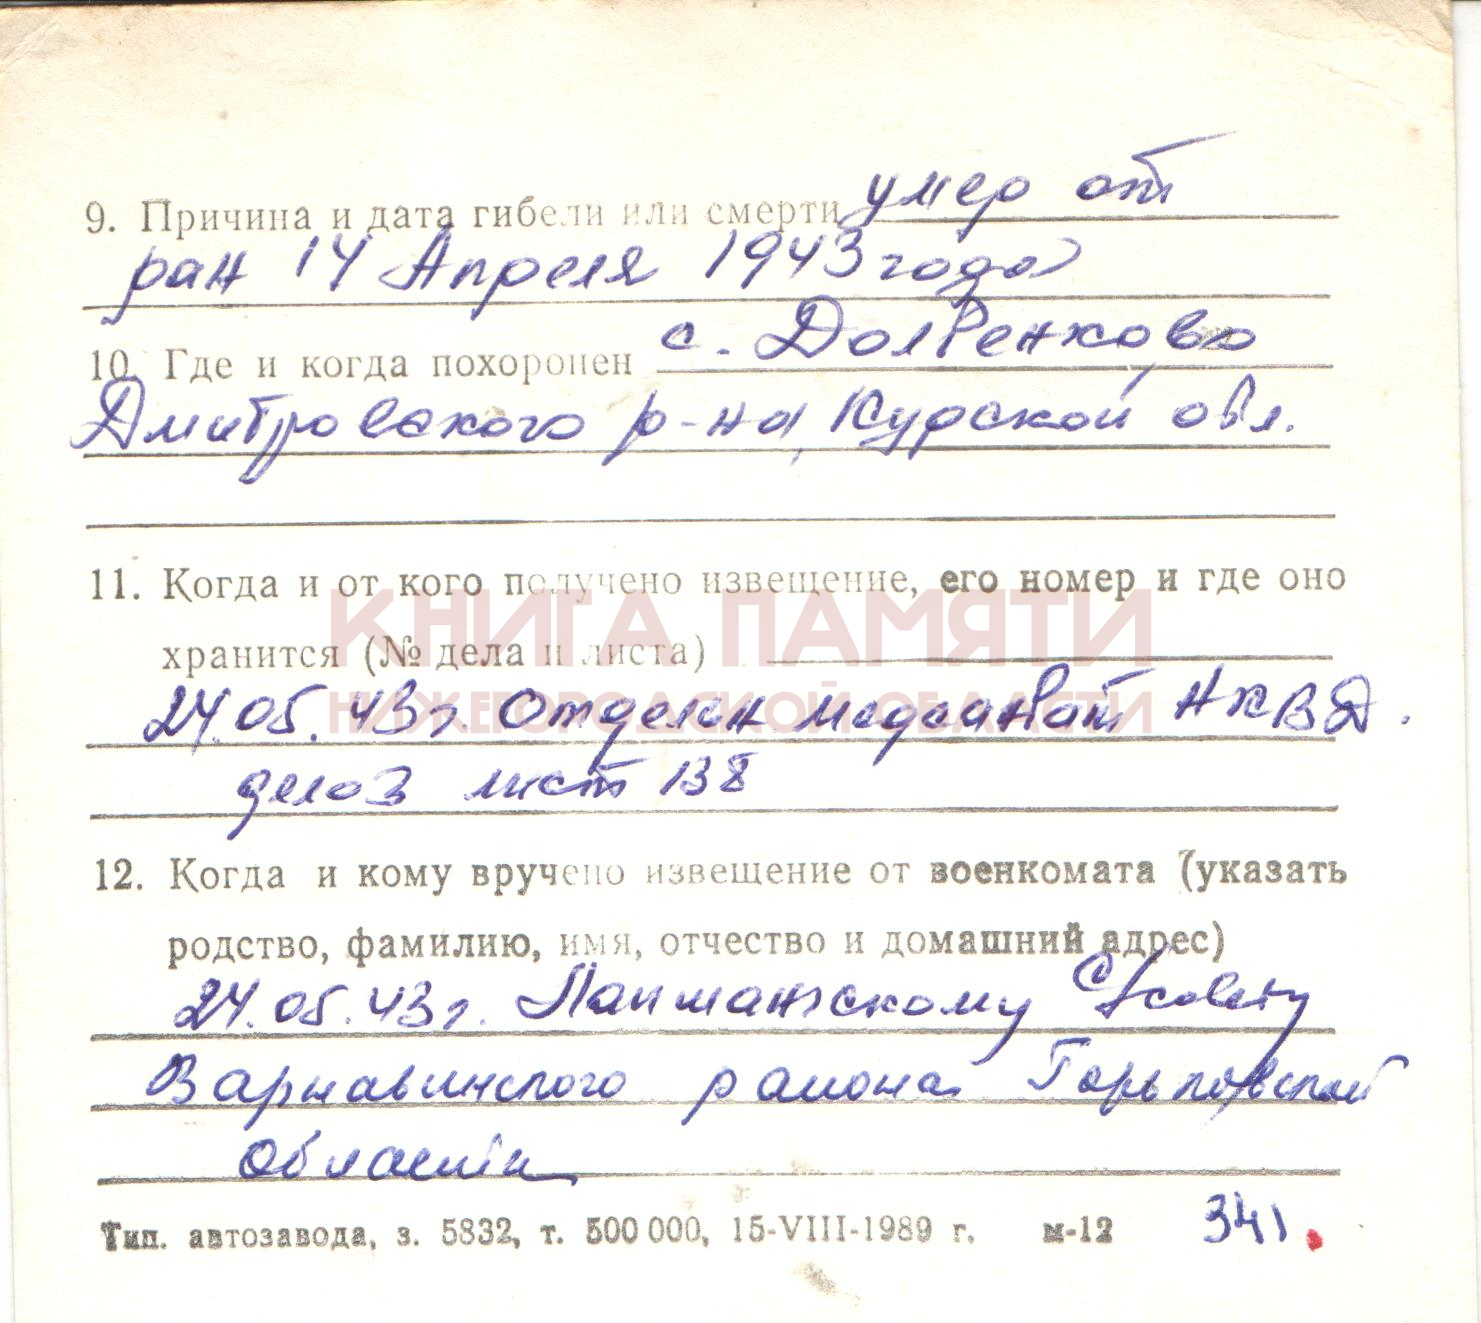 9. Причина и дата гибели или смерти умер от
ран 14 Апреля 1943 года
10. Где и когда похоронен с. Долбенково
Дмитровского р-на, Курской обл.
11. Когда и от кого получено извещение, его номер и где оно
КНИГА ПАМЯТИ
хранится (№ дела и листа)
НИЖЕГОРОДСКОЙ ОБЛАСТИ
24.05.43г. Отделен медсанбат НКВД.
дело 3 лист 138
12. Когда и кому вручено извещение от военкомата (указать
родство, фамилию, имя, отчество и домашний адрес)
24.05.43г. Лапшангскому С/совету
Варнавинского района Горьковской
области
Тип. автозавода, з. 5832, т. 500 000, 15-VIII-1989 г. м-12 341.